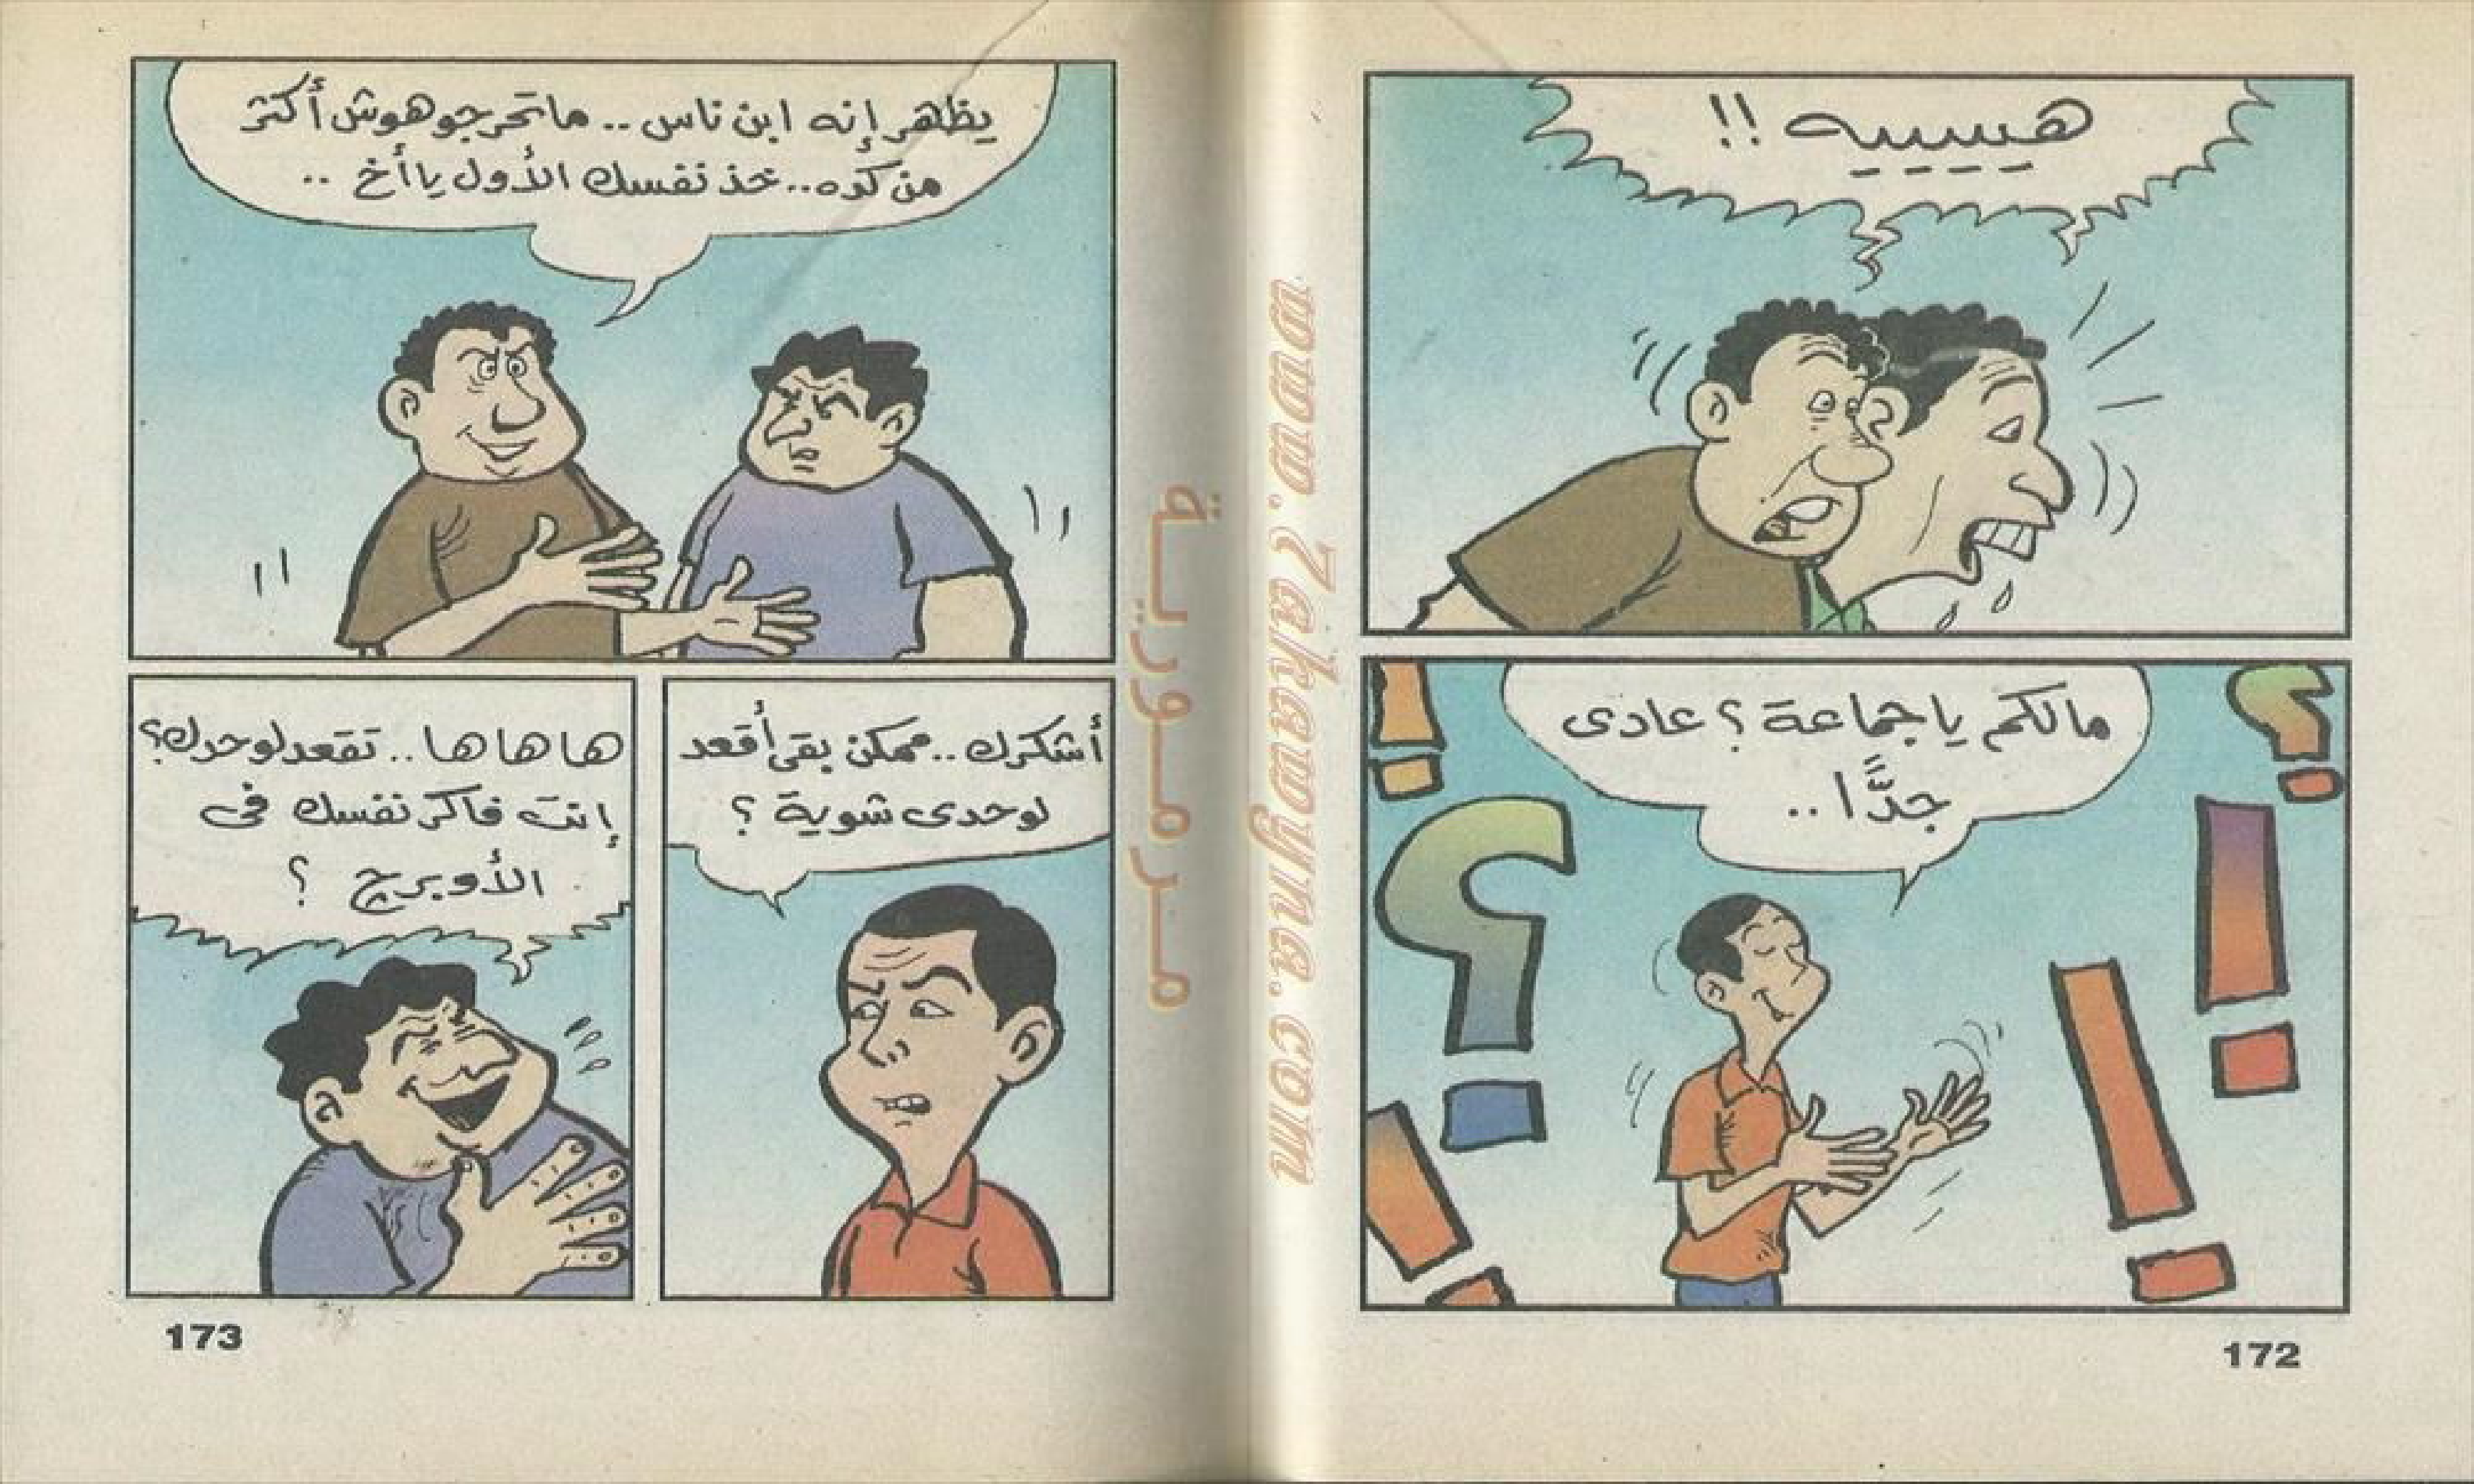 هيييييه !!
مالكم ياجماعة ؟ عادى
جدًّا ..
172
يظهر إنه ابن ناس .. ماتحرجوهوش أكتر
من كده .. خذ نفسك الأول يا أخ ..
أشكرك .. ممكن بقى أقعد
لوحدى شوية ؟
ها ها ها .. تقعد لوحدك ؟
إنت فاكر نفسك فى
الأوبرج ؟
173
مرمورية
www.7akawyna.com